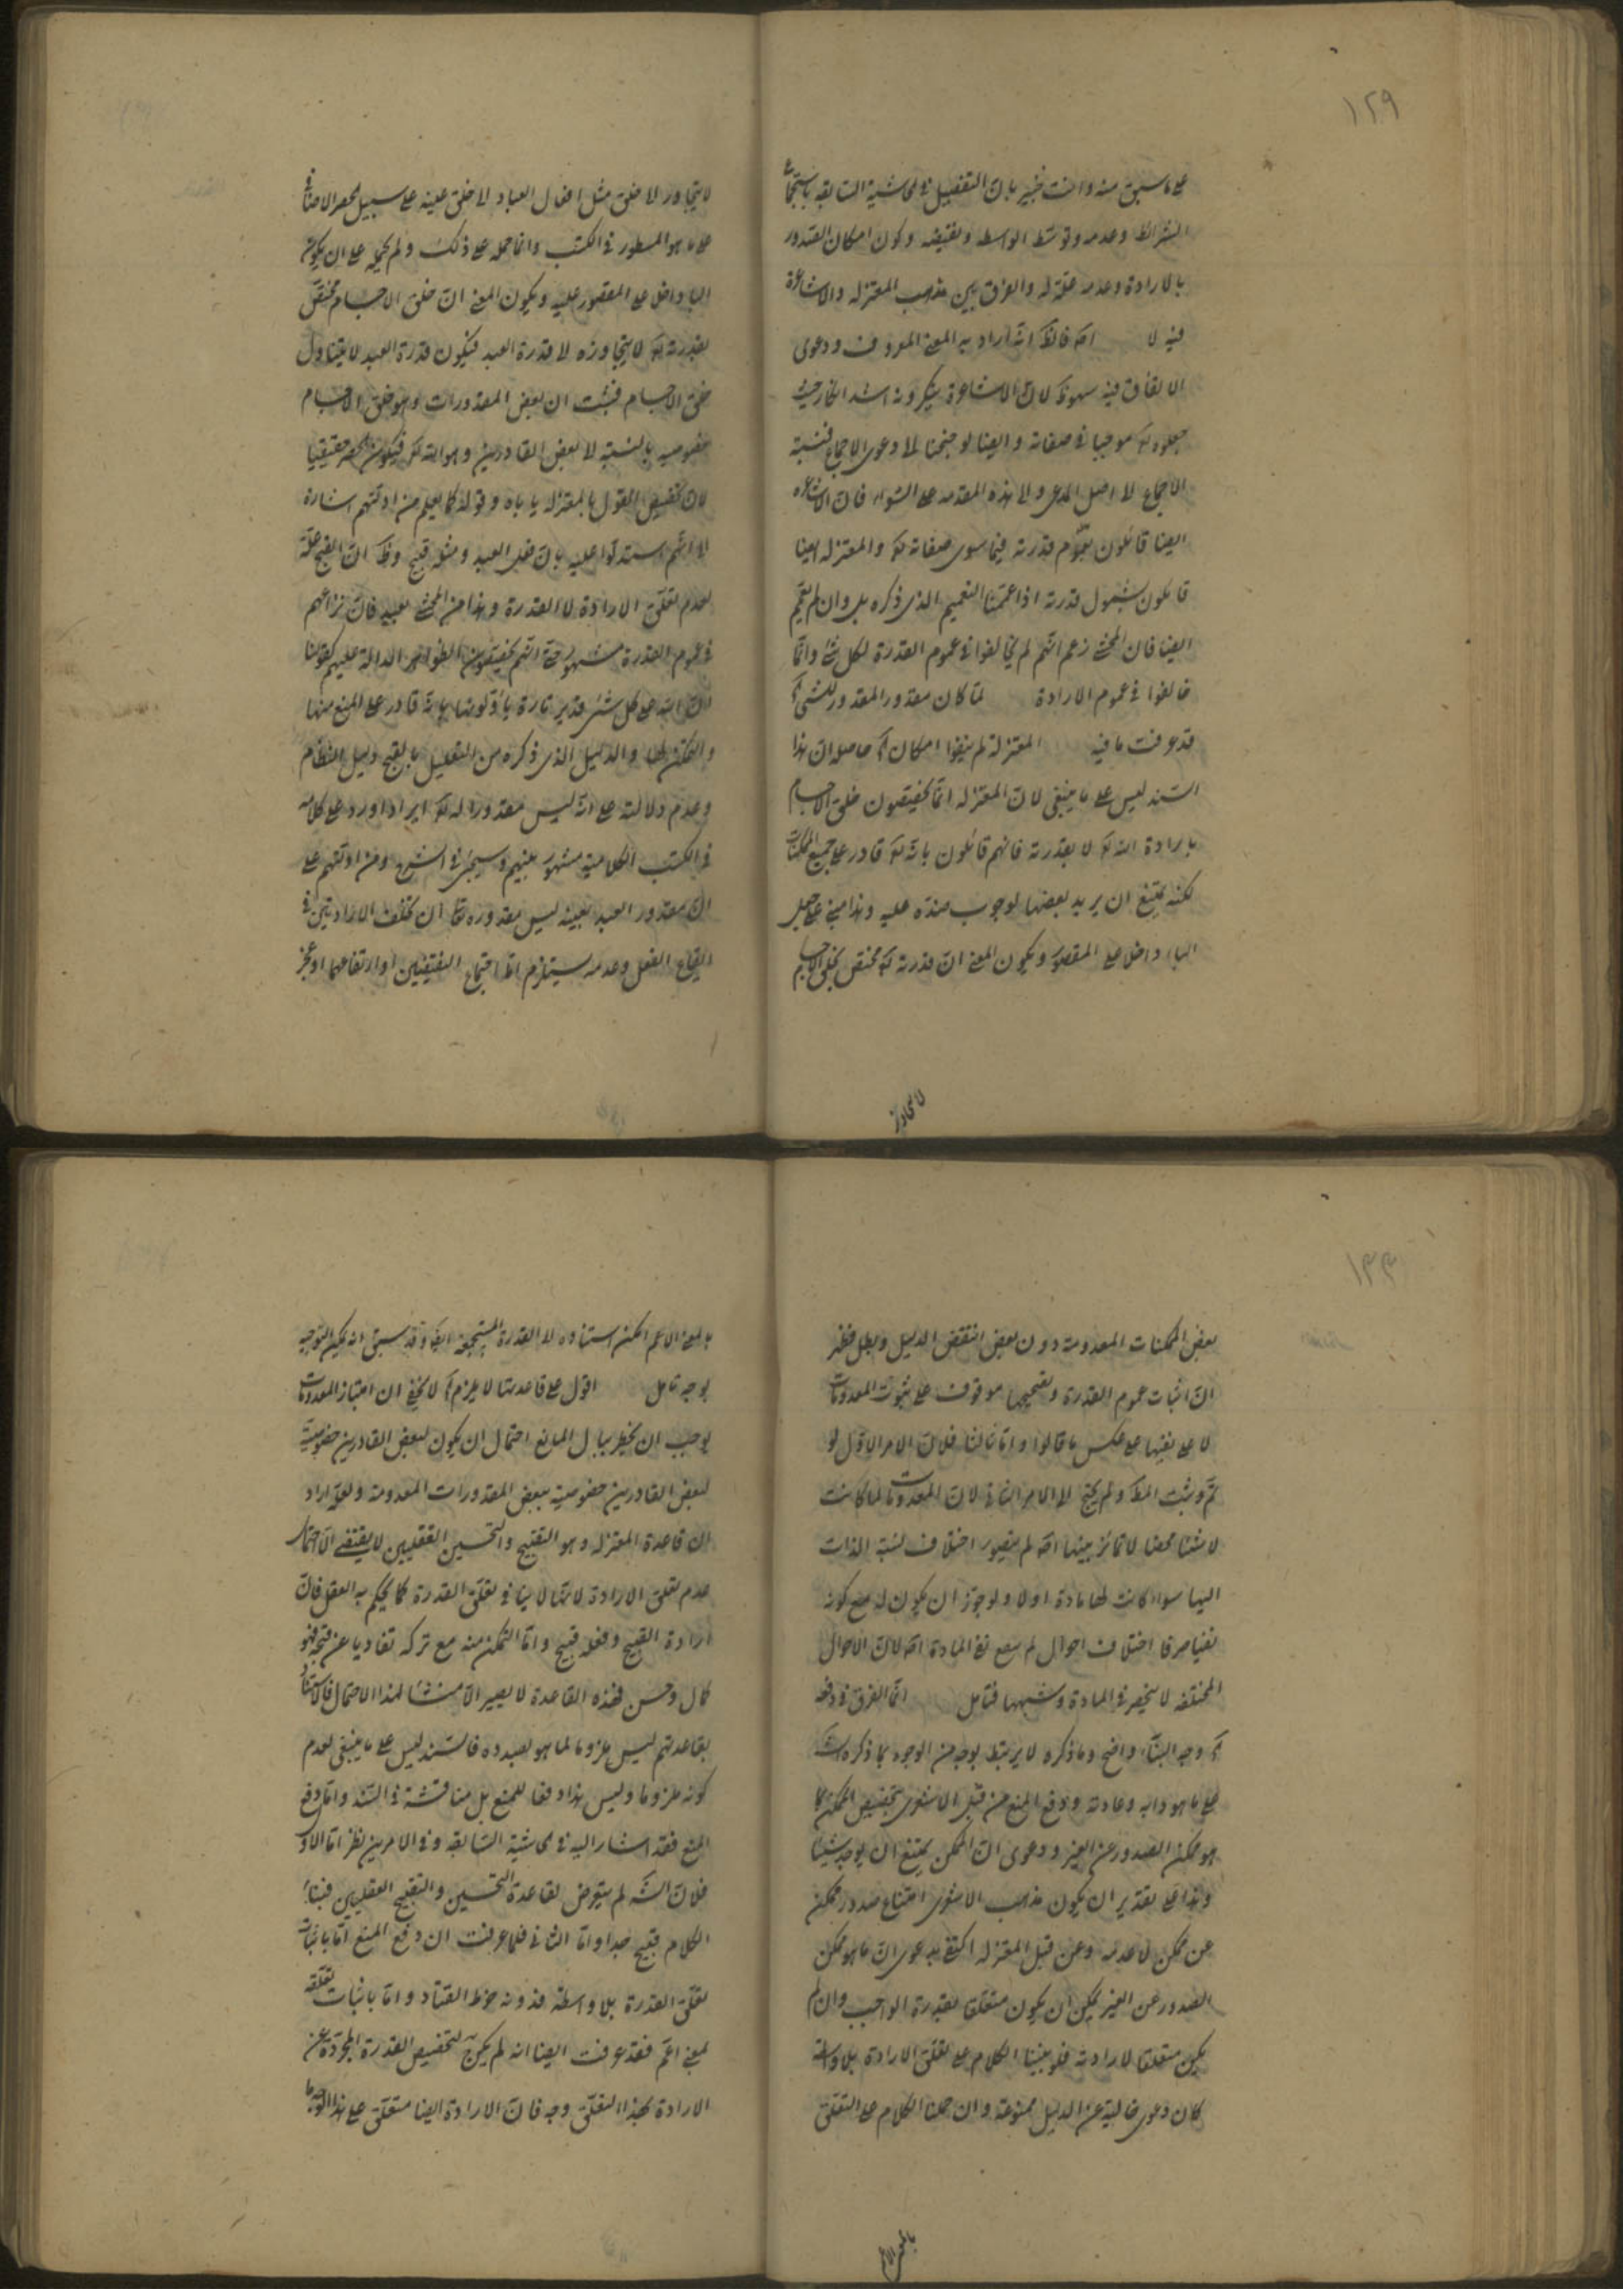 ١٢٩
على ما سبق منه وانت خبير بان التفصيل في الحاشية السابقة باستجماع
الشرائط وعدمه وتوسّط الواسطه ونقيضه وكون امكان القدور
بالارادة وعدمه علّة له والفرق بين مذهب المعتزله والاشاعرة
فيه لا اه فالظ انّه اراد به المعنى المعروف ودعوى
الاتفاق فيه سهو لانّ الاشاعرة ينكرونه اشد انكار حيث
جعلوه تع موجبا في صفاته وايضا لو جنحنا الى دعوى الاجماع فنسبة
الاجماع الى اصل المدعى والى هذه المقدمه على السّواء فانّ الاشاعره
ايضا قائلون بعموم قدرته فيما سوى صفاته تع والمعتزله ايضا
قائلون بشمول قدرته اذا عمّمنا التعميم الذى ذكره بل وان لم نعمّم
ايضا فان المحشى زعم انّهم لم يخالفوا في عموم القدرة لكل شئ وانّما
خالفوا في عموم الارادة لمّا كان مقدور المقدور للشئ آه
قد عرفت ما فيه المعتزلة لم ينفوا امكان آه حاصله انّ هذا
السّند ليس على ما ينبغى لانّ المعتزله انّما يخصّصون خلق الاجسام
بارادة الله تع لا بقدرته فانهم قائلون بانّه تع قادر على جميع الممكنات
لكنه يمتنع ان يريد بعضها لوجوب ضدّه عليه وهذا مبنى على جعل
الباء داخلا على المقصور ويكون المعنى انّ قدرته تع مختص بخلق الاجسام
لا يتجاوز
لا يتجاوز الى خلق مثل افعال العباد الى خلق عينه على سبيل الحصر الاضافى
على ما هو المسطور في الكتب وانّما حمله على ذلك ولم يحمله على ان يكون
الباء داخلا على المقصور عليه ويكون المعنى انّ خلق الاجسام مختصّ
بقدرته تع لا يتجاوزه الى قدرة العبد فيكون قدرة العبد لا يتناول
خلق الاجسام فثبت ان لبعض المقدورات وهو خلق الاجسام
خصوصيه بالنسبة الى بعض القادرين وهو الله تع فيكون الحصر حقيقيا
لانّ تخصيص القول بالمعتزله ياباه وقوله كما يعلم من ادلّتهم اشارة
الى انّهم استدلّوا عليه بانّ فعل العبد ومثله قبيح وظ انّ القبح علّة
لعدم تعلّق الارادة لا القدرة وهذا من المحشى بعيد فانّ نزاعهم
في عموم القدرة مشهور حتى انّهم يخصّصون الظواهر الدالة عليهم كقولنا
انّ الله على كل شئ قدير تارة ياوّلونها بانّه قادر على المنع منها
والتمكّن لها والدليل الذى ذكره من التعليل بالقبح دليل النظّام
وعدم دلالته على انّه ليس مقدورا له تع ايراد اورد على كلامه
في الكتب الكلامية مشهور بينهم وسيجئ في الشرح ومن ادلّتهم على
انّ مقدور العبد بعينه ليس مقدوره تع انّ تخلّف الارادتين في
ايقاع الفعل وعدمه يستلزم امّا اجتماع النقيضين او ارتفاعهما او عجز
١٣٠
بعض الممكنات المعدومة دون بعض انتقض الدليل وبطل فظهر
انّ اثبات عموم القدرة وتصحيحها موقوف على ثبوت المعدومات
لا على نفيها على عكس ما قالوا واما ثالثا فلانّ الامر الاوّل لو
تمّ وثبت المط ولم يحتج الى الامر الثانى لانّ المعدومات لما كانت
لا شئا محضا لا تمائز بينها اصلا لم يتصور اختلاف نسبة الذات
اليها سواء كانت لها مادة او لا ولو جوّز ان يكون له مع كونه
نفيا صرفا اختلاف احوال لم ينفع نفى المادة اه لانّ الاحوال
المختلفه لا ينحصر في المادة وشبهها فتامل انّما الفرق في دفعه
آه وجه البناء واضح وما ذكره لا يرتبط بوجه من الوجوه بما ذكره الش
على ما هو دابه وعادته ودفع المنع من قبل الاشعرى بتخصيص الممكن بما
هو ممكن الصدور عن الغير ودعوى انّ الممكن يمتنع ان يوجد شيئا
وهذا على تقدير ان يكون مذهب الاشعرى امتناع صدور ممكن
عن ممكن لا عدمه وعن قبل المعتزله اكتفى بدعوى انّ ما هو ممكن
الصدور عن الغير يمكن ان يكون متعلقا بقدرة الواجب وان لم
يكن متعلقا لارادته فلو بنينا الكلام على تعلّق الارادة بلا واسطه
كان دعوى خالية عن الدليل ممنوعة وان حملنا الكلام على التعلّق
بالمعنى الاعم
بالمعنى الاعم امكن استناده الى القدرة المستجمعة ايضا وقد سبق انه يمكن التوجيه
بوجه تامل اقول على قاعدتها لا يلزم آه لا يخفى ان امتياز المعدومات
يوجب ان يخطر ببال المانع احتمال ان يكون لبعض القادرين خصوصيّة
لبعض القادرين خصوصيّة ببعض المقدورات المعدومة ولعلّه اراد
ان قاعدة المعتزله وهو التقبيح والتحسين العقليين لا يقتضى الّا احتمال
عدم تعلّق الارادة لانّها لا ينافى تعلّق القدرة كما يحكم به العقل فانّ
ارادة القبيح وفعله قبيح وامّا التمكّن منه مع تركه تفاديا عن قبحه فهو
كمال وحسن فهذه القاعدة لا يصير الّا منشئا لهذا الاحتمال فالاستناد
بقاعدتهم ليس ملزوما لما هو بصدده فالسّند ليس على ما ينبغى لعدم
كونه ملزوما وليس هذا دفعا للمنع بل مناقشة في السّند وامّا دفع
المنع فقد اشار اليه في الحاشية السّابقه وفى الامرين نظر امّا الاوّل
فلانّ الش لم يتعرض لقاعدة التحسين والتقبيح العقليين فبناء
الكلام قبيح جدا وامّا الثانى فلما عرفت ان دفع المنع امّا باثبات
تعلّق القدرة بلا واسطة فدونه خرط القتاد وامّا باثبات تعلّقه
بمعنى اعمّ فقد عرفت ايضا انه لم يكن لتخصيص القدرة المجرّدة عن
الارادة بهذا التعلّق وجه فانّ الارادة ايضا متعلّق على هذا الوجه